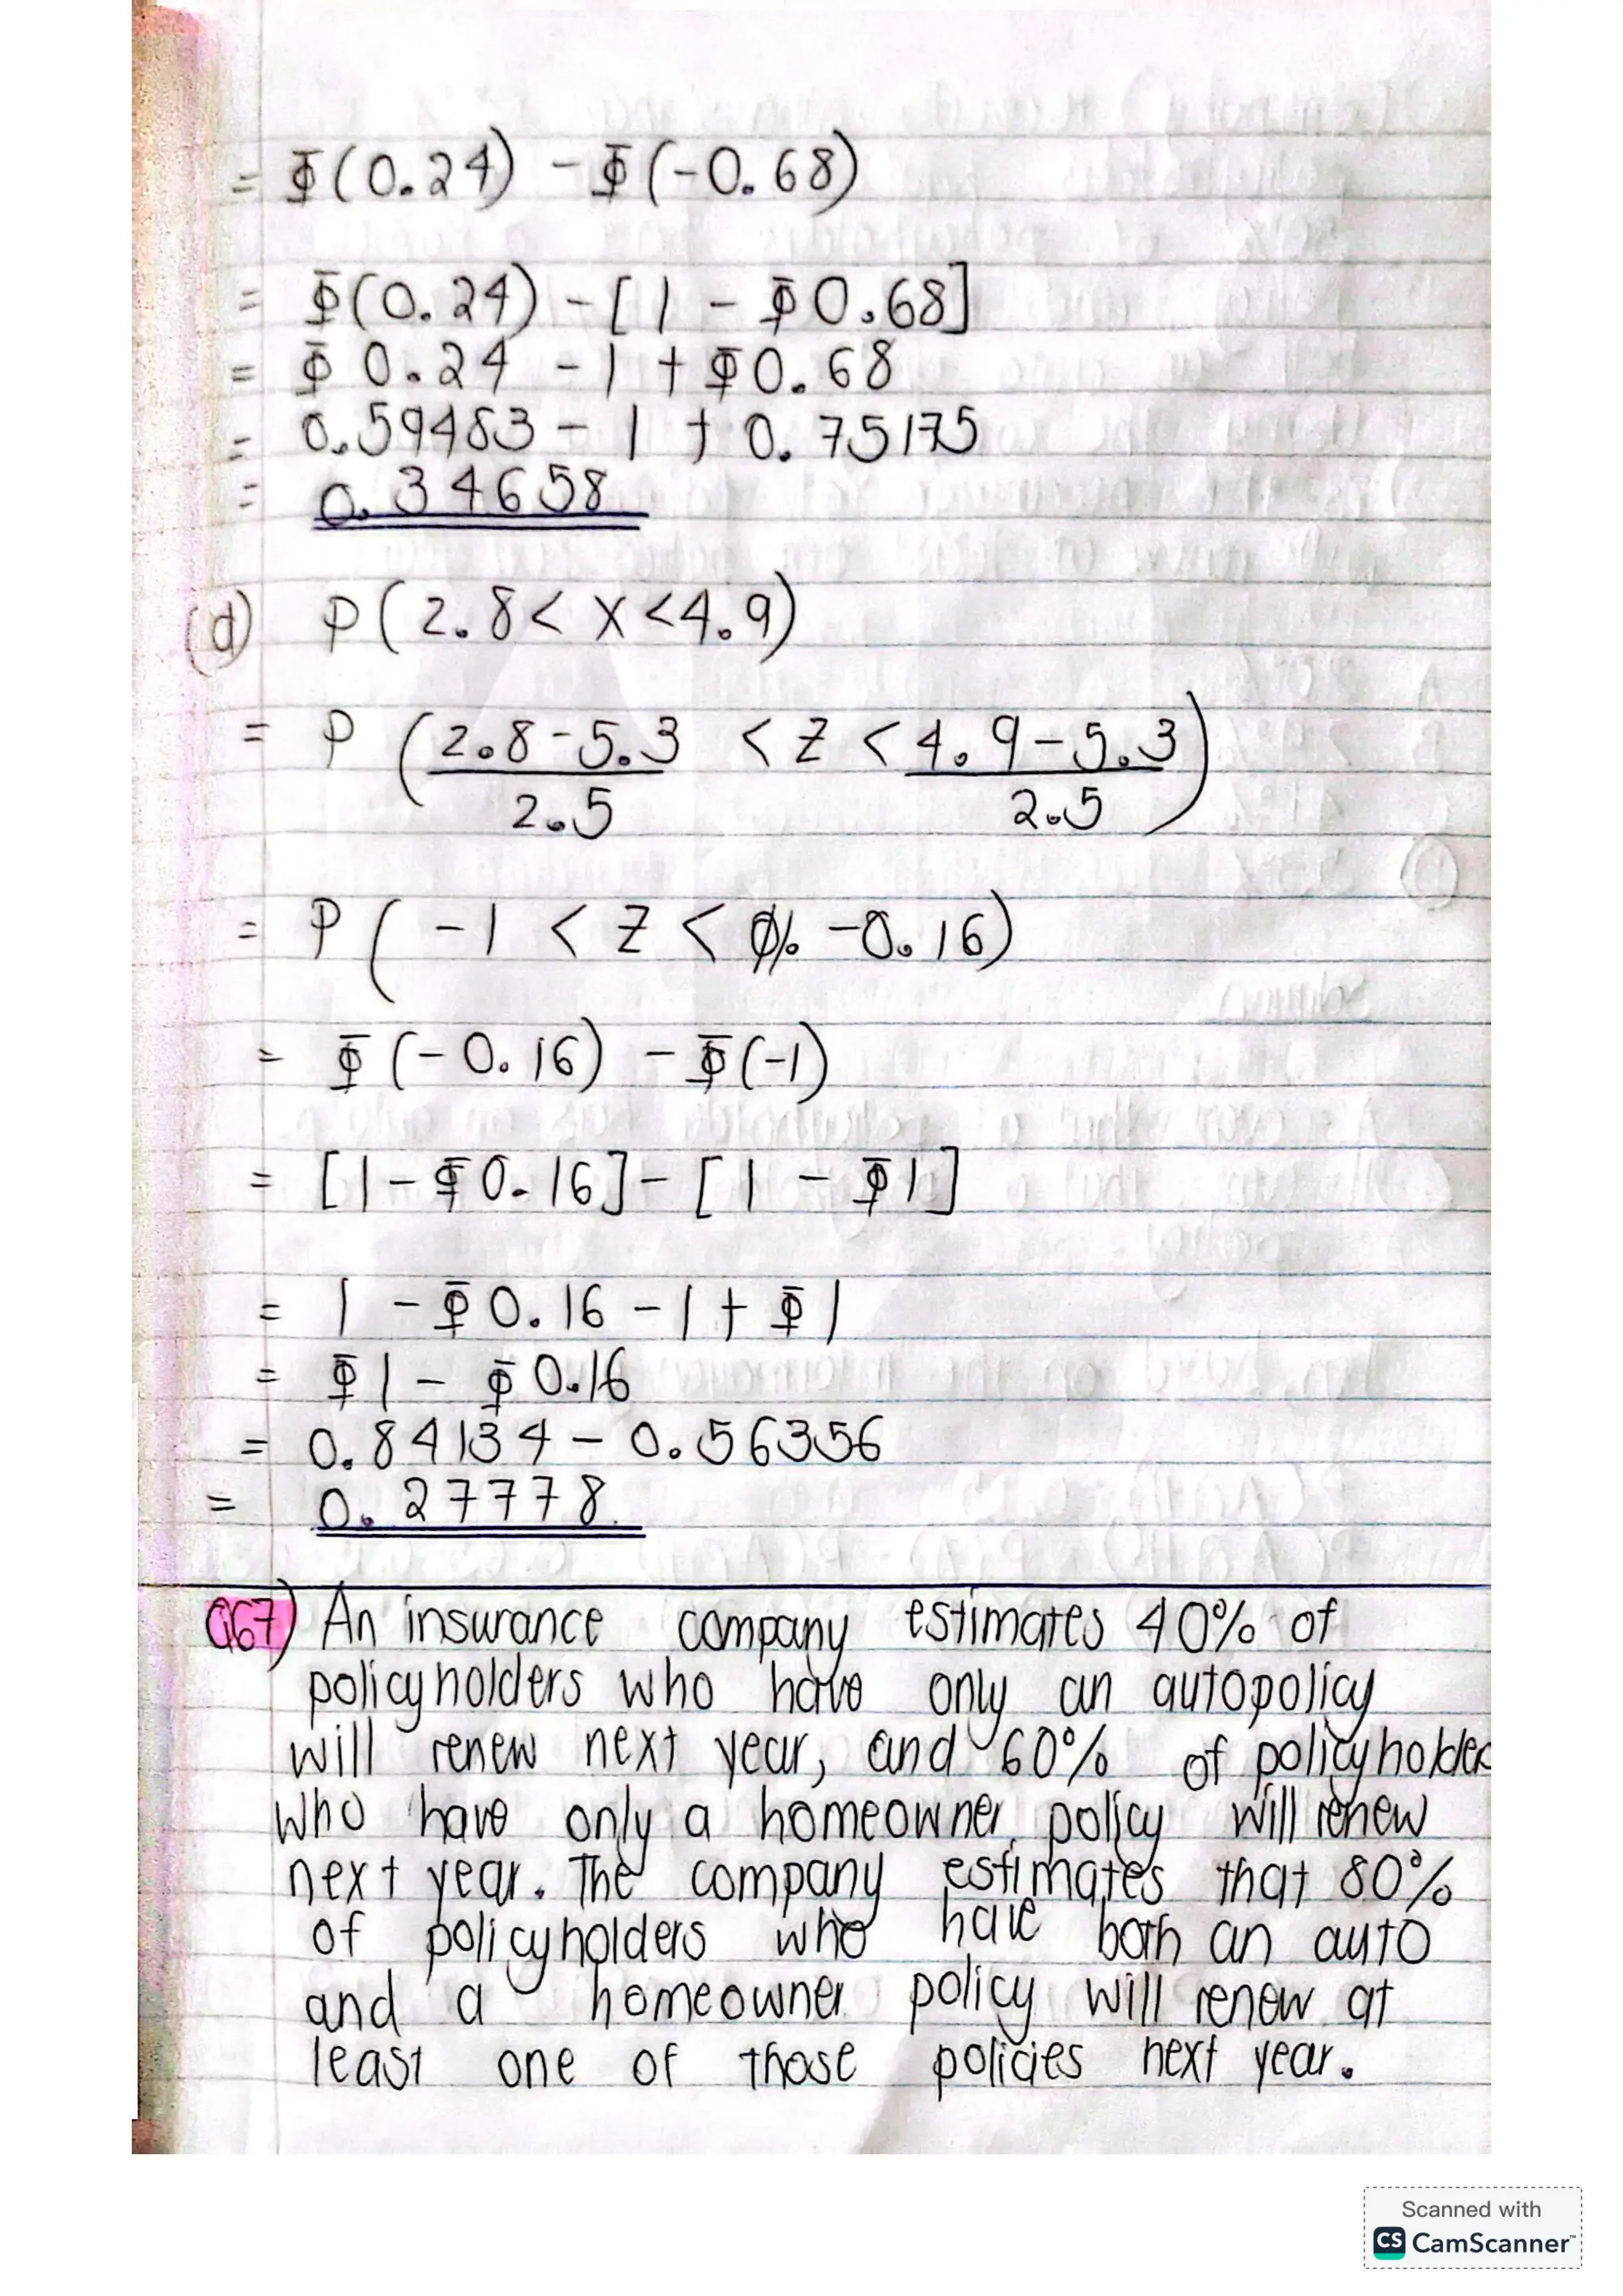 = Φ(0.24) - Φ(-0.68)
= Φ(0.24) - [1 - Φ0.68]
= Φ 0.24 - 1 + Φ0.68
= 0.59483 - 1 + 0.75175
= 0.34658
(d) P(2.8 < X < 4.9)
= P (2.8-5.3 / 2.5 < Z < 4.9-5.3 / 2.5)
= P ( -1 < Z < -0.16)
= Φ (-0.16) - Φ(-1)
= [1 - Φ0.16] - [1 - Φ1]
= 1 - Φ0.16 - 1 + Φ1
= Φ1 - Φ0.16
= 0.84134 - 0.56356
= 0.27778
Q67) An insurance company estimates 40% of
policyholders who have only an autopolicy
will renew next year, and 60% of policyholder
who have only a homeowner policy will renew
next year. The company estimates that 80%
of policyholders who have both an auto
and a homeowner policy will renew at
least one of those policies next year.
Scanned with
CS CamScanner™